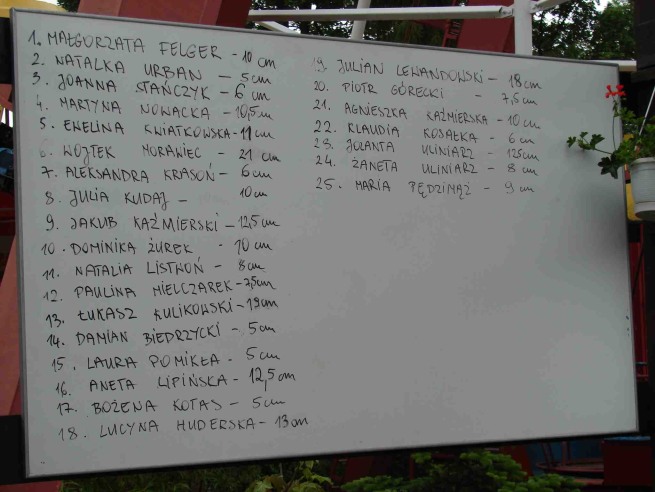 1. MAŁGORZATA FELGER - 10 cm
2. NATALKA URBAN - 5 cm
3. JOANNA STAŃCZYK - 6 cm
4. MARTYNA NOWACKA - 10,5 cm
5. EWELINA KWIATKOWSKA - 11 cm
6. WOJTEK MORAWIEC - 21 cm
7. ALEKSANDRA KRASOŃ - 6 cm
8. JULIA KUDAJ - 10 cm
9. JAKUB KAŹMIERSKI - 12,5 cm
10. DOMINIKA ŻUREK - 10 cm
11. NATALIA LISTWOŃ - 8 cm
12. PAULINA MIELCZAREK - 7,5 cm
13. ŁUKASZ KULIKOWSKI - 19 cm
14. DAMIAN BIEDRZYCKI - 5 cm
15. LAURA POMIKŁA - 5 cm
16. ANETA LIPIŃSKA - 12,5 cm
17. BOŻENA KOTAS - 5 cm
18. LUCYNA HUDERSKA - 13 cm
19. JULIAN LEWANDOWSKI - 18 cm
20. PIOTR GÓRECKI - 7,5 cm
21. AGNIESZKA KAŹMIERSKA - 10 cm
22. KLAUDIA KOSAŁKA - 6 cm
23. JOLANTA ULINIARZ - 12,5 cm
24. ŻANETA ULINIARZ - 8 cm
25. MARIA PĘDZIMĄŻ - 9 cm